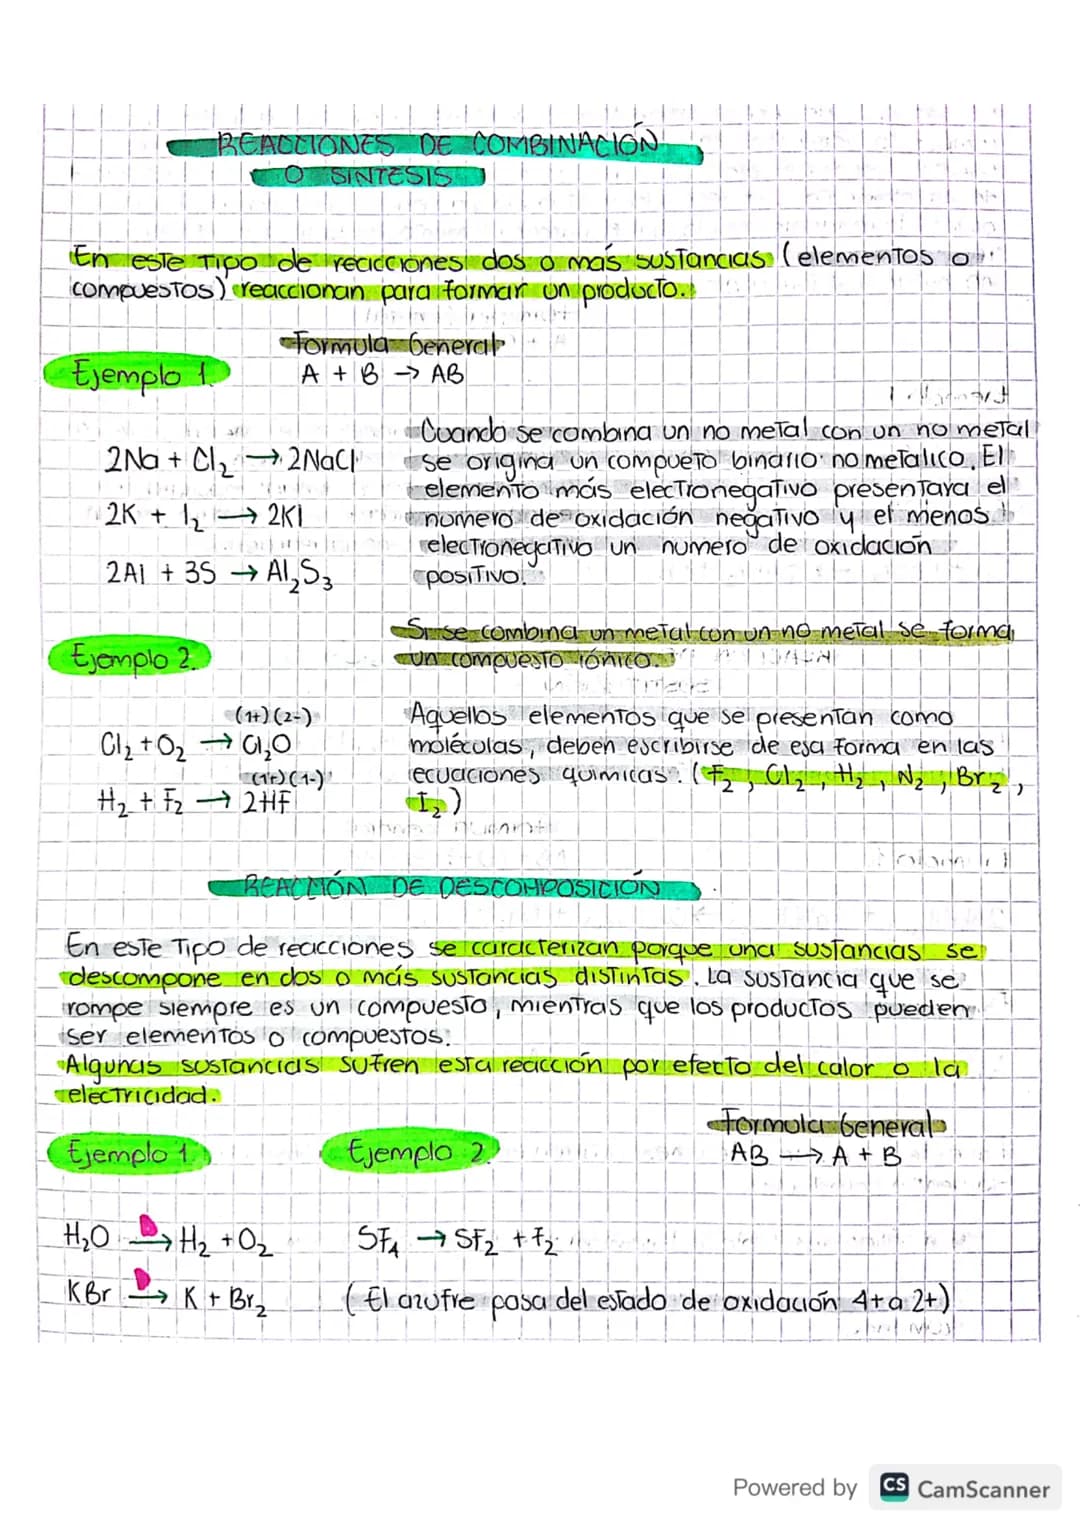 REACCIONES DE COMBINACIÓN
O SINTESIS
En este tipo de reacciones dos o más sustancias (elementos o
compuestos) reaccionan para formar un producto.
Formula General
A + B → AB
Ejemplo 1.
2Na + Cl₂ → 2NaCl
2K + I₂ → 2KI
2Al + 3S → Al₂S₃
Cuando se combina un no metal con un no metal
se origina un compueto binario no metalico. El
elemento más electronegativo presentara el
numero de oxidación negativo y el menos
electronegativo un numero de oxidación
positivo.
Si se combina un metal con un no metal se forma
un compuesto iónico.
Ejemplo 2.
(1+)(2-)
Cl₂ + O₂ → Cl₂O
(1+)(1-)
H₂ + F₂ → 2HF
Aquellos elementos que se presentan como
moléculas, deben escribirse de esa forma en las
ecuaciones quimicas. (F₂, Cl₂, H₂, N₂, Br₂,
I₂)
REACCIÓN DE DESCOMPOSICIÓN
En este tipo de reacciones se caracterizan porque una sustancias se
descompone en dos o más sustancias distintas. La sustancia que se
rompe siempre es un compuesto, mientras que los productos pueden
ser elementos o compuestos.
Algunas sustancias sufren esta reacción por efecto del calor o la
electricidad.
Formula General
AB → A + B
Ejemplo 1.
H₂O → H₂ + O₂
KBr → K + Br₂
Ejemplo 2.
SF₄ → SF₂ + F₂
(El azufre pasa del estado de oxidación 4+ a 2+)
Powered by CS CamScanner